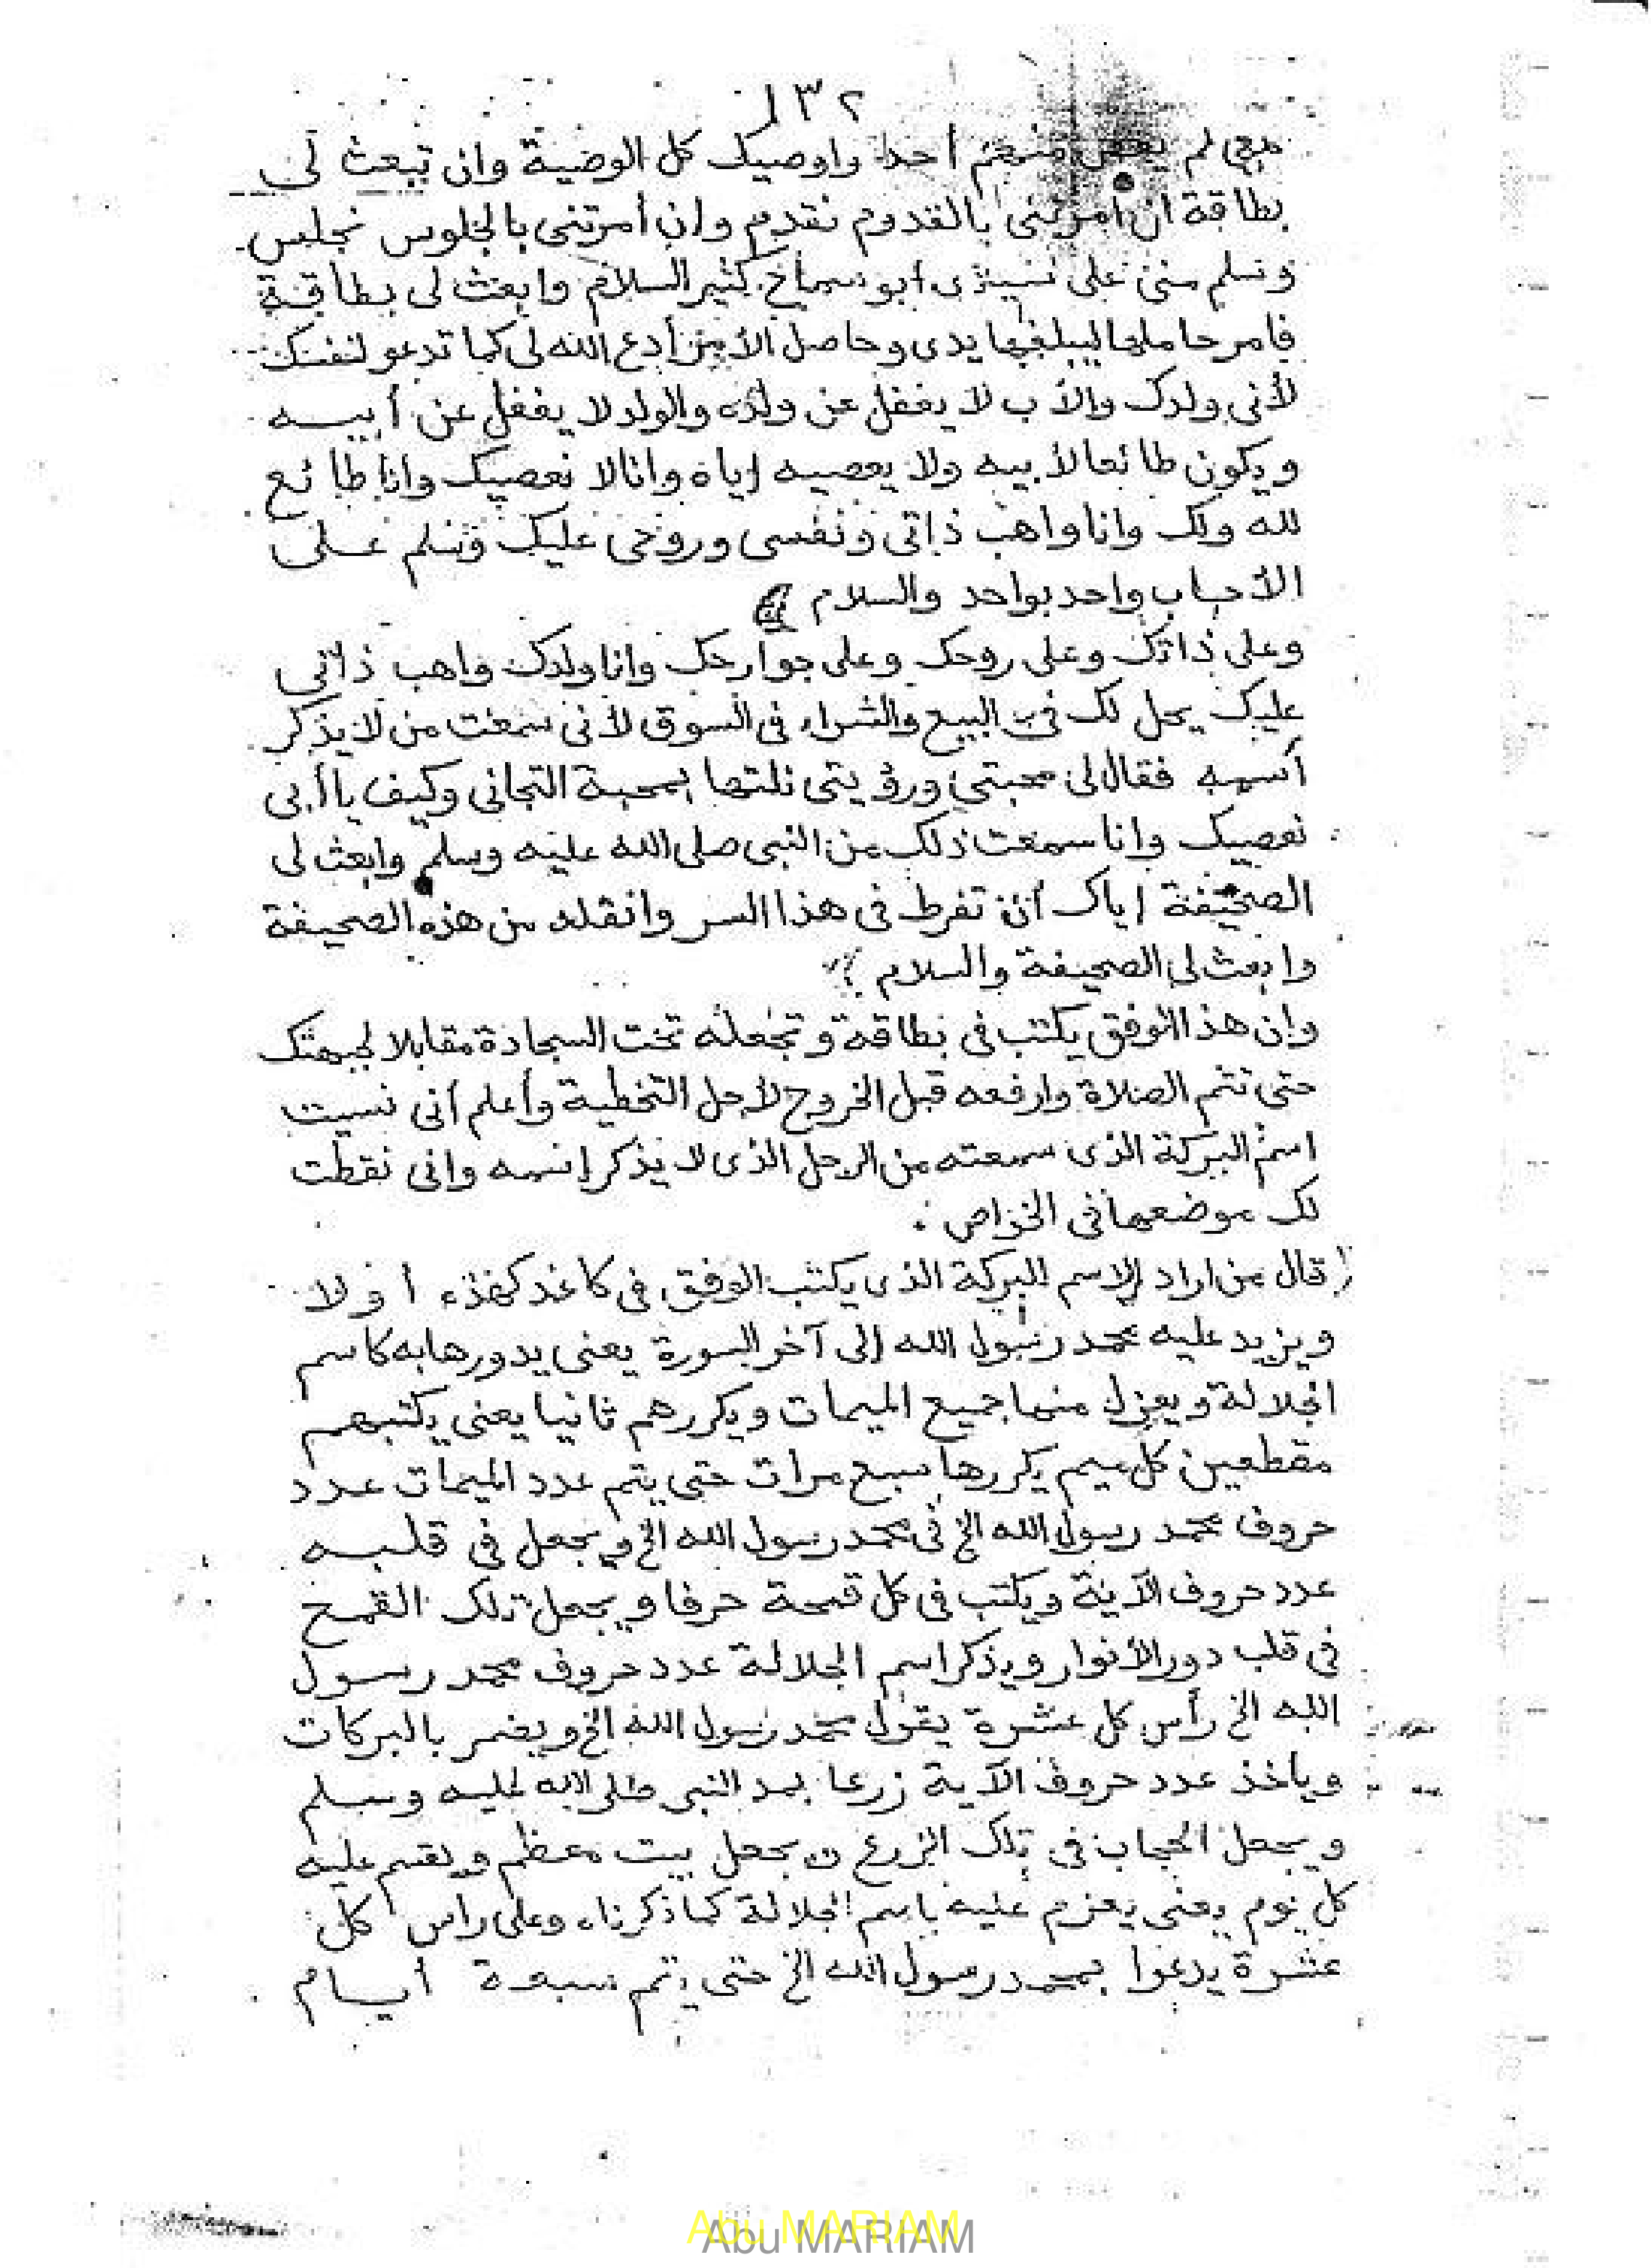 ١٣٢
معى لم منهم أحد واوصيك كل الوضية وان تبعث لى
بطاقة ان أمرتنى بالقدوم نقدم وان أمرتنى بالجلوس نجلس
ونسلم منى على أبو سماح كثير السلام وابعث لى بطاقة
فامر حاملها ليبلغها يدى وحاصل الأمر أدع الله لى كما تدعو لنفسك
لأنى ولدك والأب لا يغفل عن ولده والولد لا يغفل عن أبيه
ويكون طائعا لأبيه ولا يعصيه إياه وانا لا نعصيك وانا طائع
لله ولك وانا واهب ذاتى ونفسى وروحى عليك وسلم على
الأحباب واحد بواحد والسلام
وعلى ذاتك وعلى روحك وعلى جوارحك وانا ولدك واهب ذاتى
عليك يحل لك في البيع والشراء فى السوق لأنى سمعت من لا يذكر
أسمه فقال لى محبتي ورؤيتى نلتها بمحبة التجانى وكيف يا أبى
نعصيك وانا سمعت ذلك من النبى صلى الله عليه وسلم وابعث لى
الصحيفة إياك أن تفرط فى هذا السر وانقله من هذه الصحيفة
وابعث لى الصحيفة والسلام
وان هذا الوفق يكتب فى بطاقة وتجعله تحت السجادة مقابلا لجبهتك
حتى تتم الصلاة وارفعه قبل الخروج لأجل التخطية وأعلم أنى نسيت
اسم البركة الذى سمعته من الرجل الذى لا يذكر إسمه وانى نقطت
لك موضعها فى الخواص .
قال من اراد الاسم البركة الذى يكتب الوفق فى كاغد كهذه أولا
ويزيد عليه محمد رسول الله إلى آخر السورة يعنى يدورها به كاسم
الجلالة ويعزل منها جميع الميمات ويكررهم ثانيا يعنى يكتبهم
مقطعين كل ميم يكررها سبع مرات حتى يتم عدد الميمات عدد
حروف محمد رسول الله الخ فى محمد رسول الله الخ ويجعل فى قلبه
عدد حروف الآية ويكتب فى كل قمحة حرفا ويجعل تلك القمح
فى قلب دور الأنوار ويذكر اسم الجلالة عدد حروف محمد رسول
الله الخ رأس كل عشرة يقول محمد رسول الله الخ ويضمر بالبركات
وياخذ عدد حروف الآية زرعا بمد النبى صلى الله عليه وسلم
ويجعل الحجاب فى تلك الزرع ويجعل بيت معظم ويقسم عليه
كل يوم يعنى يعزم عليه باسم الجلالة كما ذكرناه وعلى راس كل
عشرة يدعوا بمحمد رسول الله الخ حتى يتم سبعة أيام
Abu MARIAM